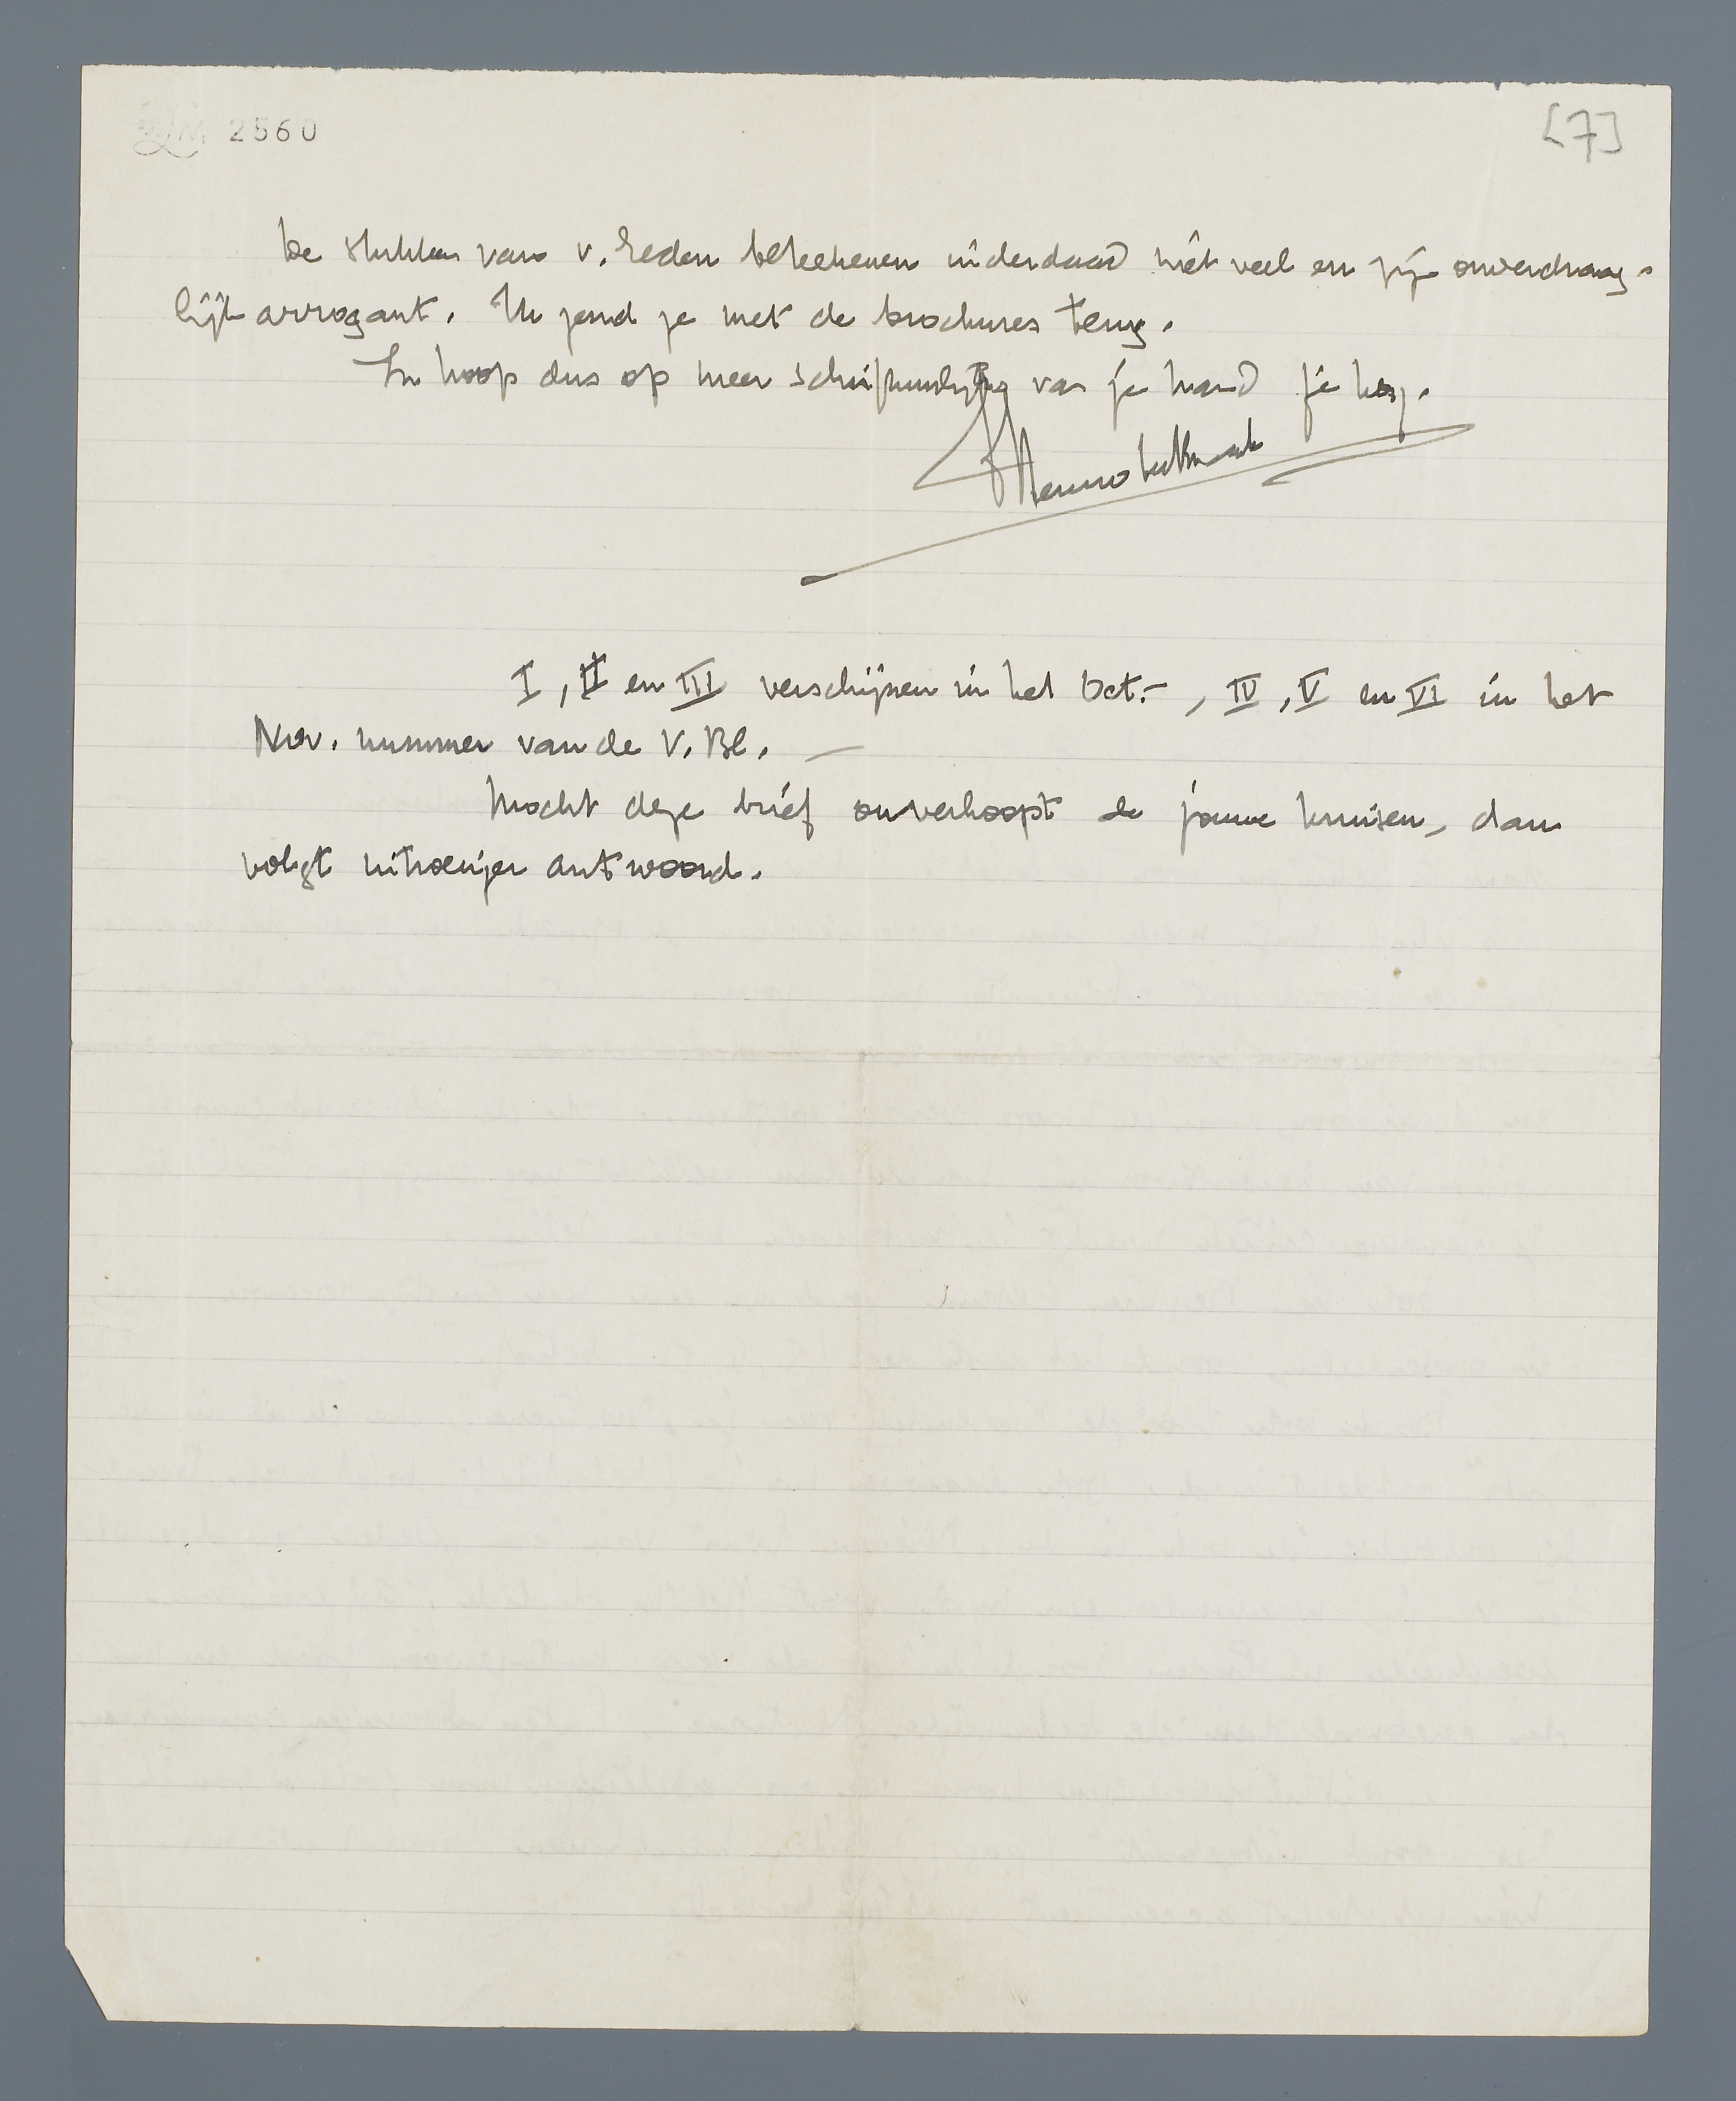 2560
[7]
De stukken van v. Eeden beteekenen inderdaad niet veel en zijn onverdraag-
lijk arrogant. Ik zend je met de brochures terug.
In hoop dus op meer van je hand je
Menno ter Braak
I, II en III verschijnen in het Oct.-, IV, V en VI in het
Nov. nummer van de V. Bl. —
Mocht deze brief onverhoopt de jouwe kruisen, dan
volgt uitvoeriger antwoord.